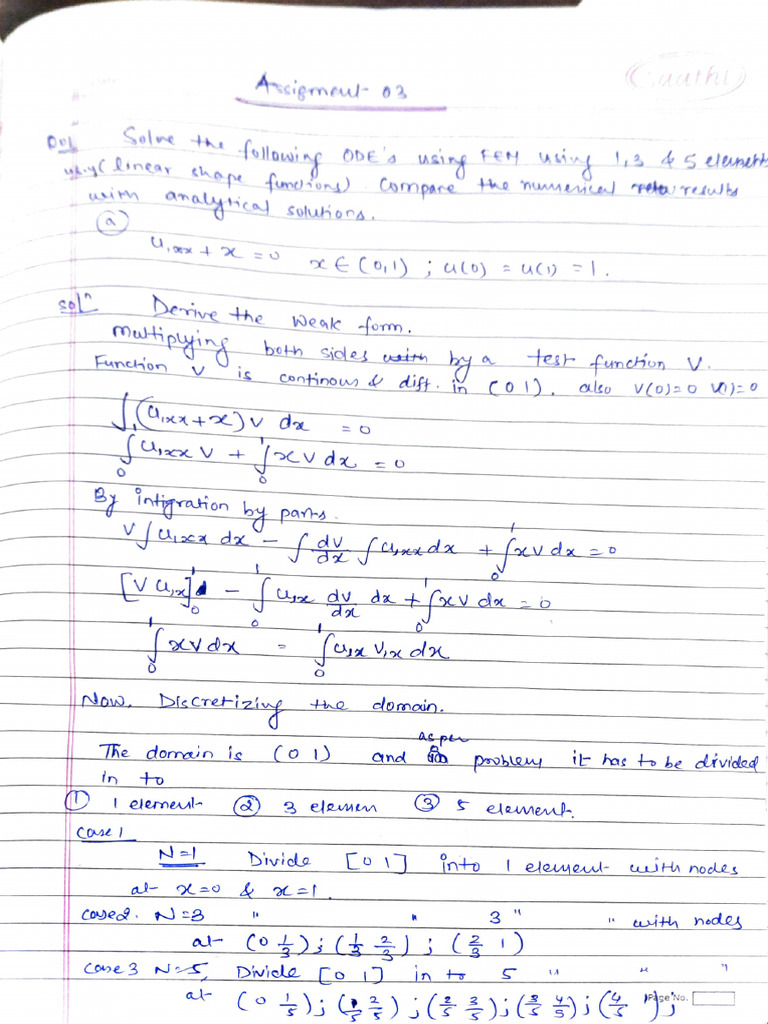 Saathi
Assigment-03
Q01 Solve the following ODE's using FEM using 1,3 & 5 elements
(linear shape functions) Compare the numerical results
with analytical solutions.
(a)
u,xx + x = 0 x ∈ (0,1) ; u(0) = u(1) = 1.
solⁿ Derive the weak form.
multiplying both sides by a test function V.
Function V is continous & diff. in (0 1). also V(0)=0 V(1)=0
∫(u,xx+x)v dx = 0
∫₀¹ u,xx v + ∫₀¹ xv dx = 0
By intigration by parts.
V∫u,xx dx - ∫ dv/dx ∫u,xx dx + ∫₀¹ xv dx = 0
[V u,x]₀¹ - ∫₀¹ u,x dv/dx dx + ∫₀¹ xv dx = 0
∫₀¹ xv dx = ∫₀¹ u,x v,x dx
Now, Discretizing the domain.
The domain is (0 1) and as per problem it has to be divided
in to
① 1 element ② 3 elemen ③ 5 element.
Case 1
N=1 Divide [0 1] into 1 element with nodes
at x=0 & x=1.
case2. N=3 " " 3 " " with nodes
at (0 1/3) ; (1/3 2/3) ; (2/3 1)
Case 3 N=5, Divide [0 1] in to 5 " " "
at (0 1/5) ; (1/5 2/5) ; (2/5 3/5) ; (3/5 4/5) ; (4/5 1) ;
Page No.